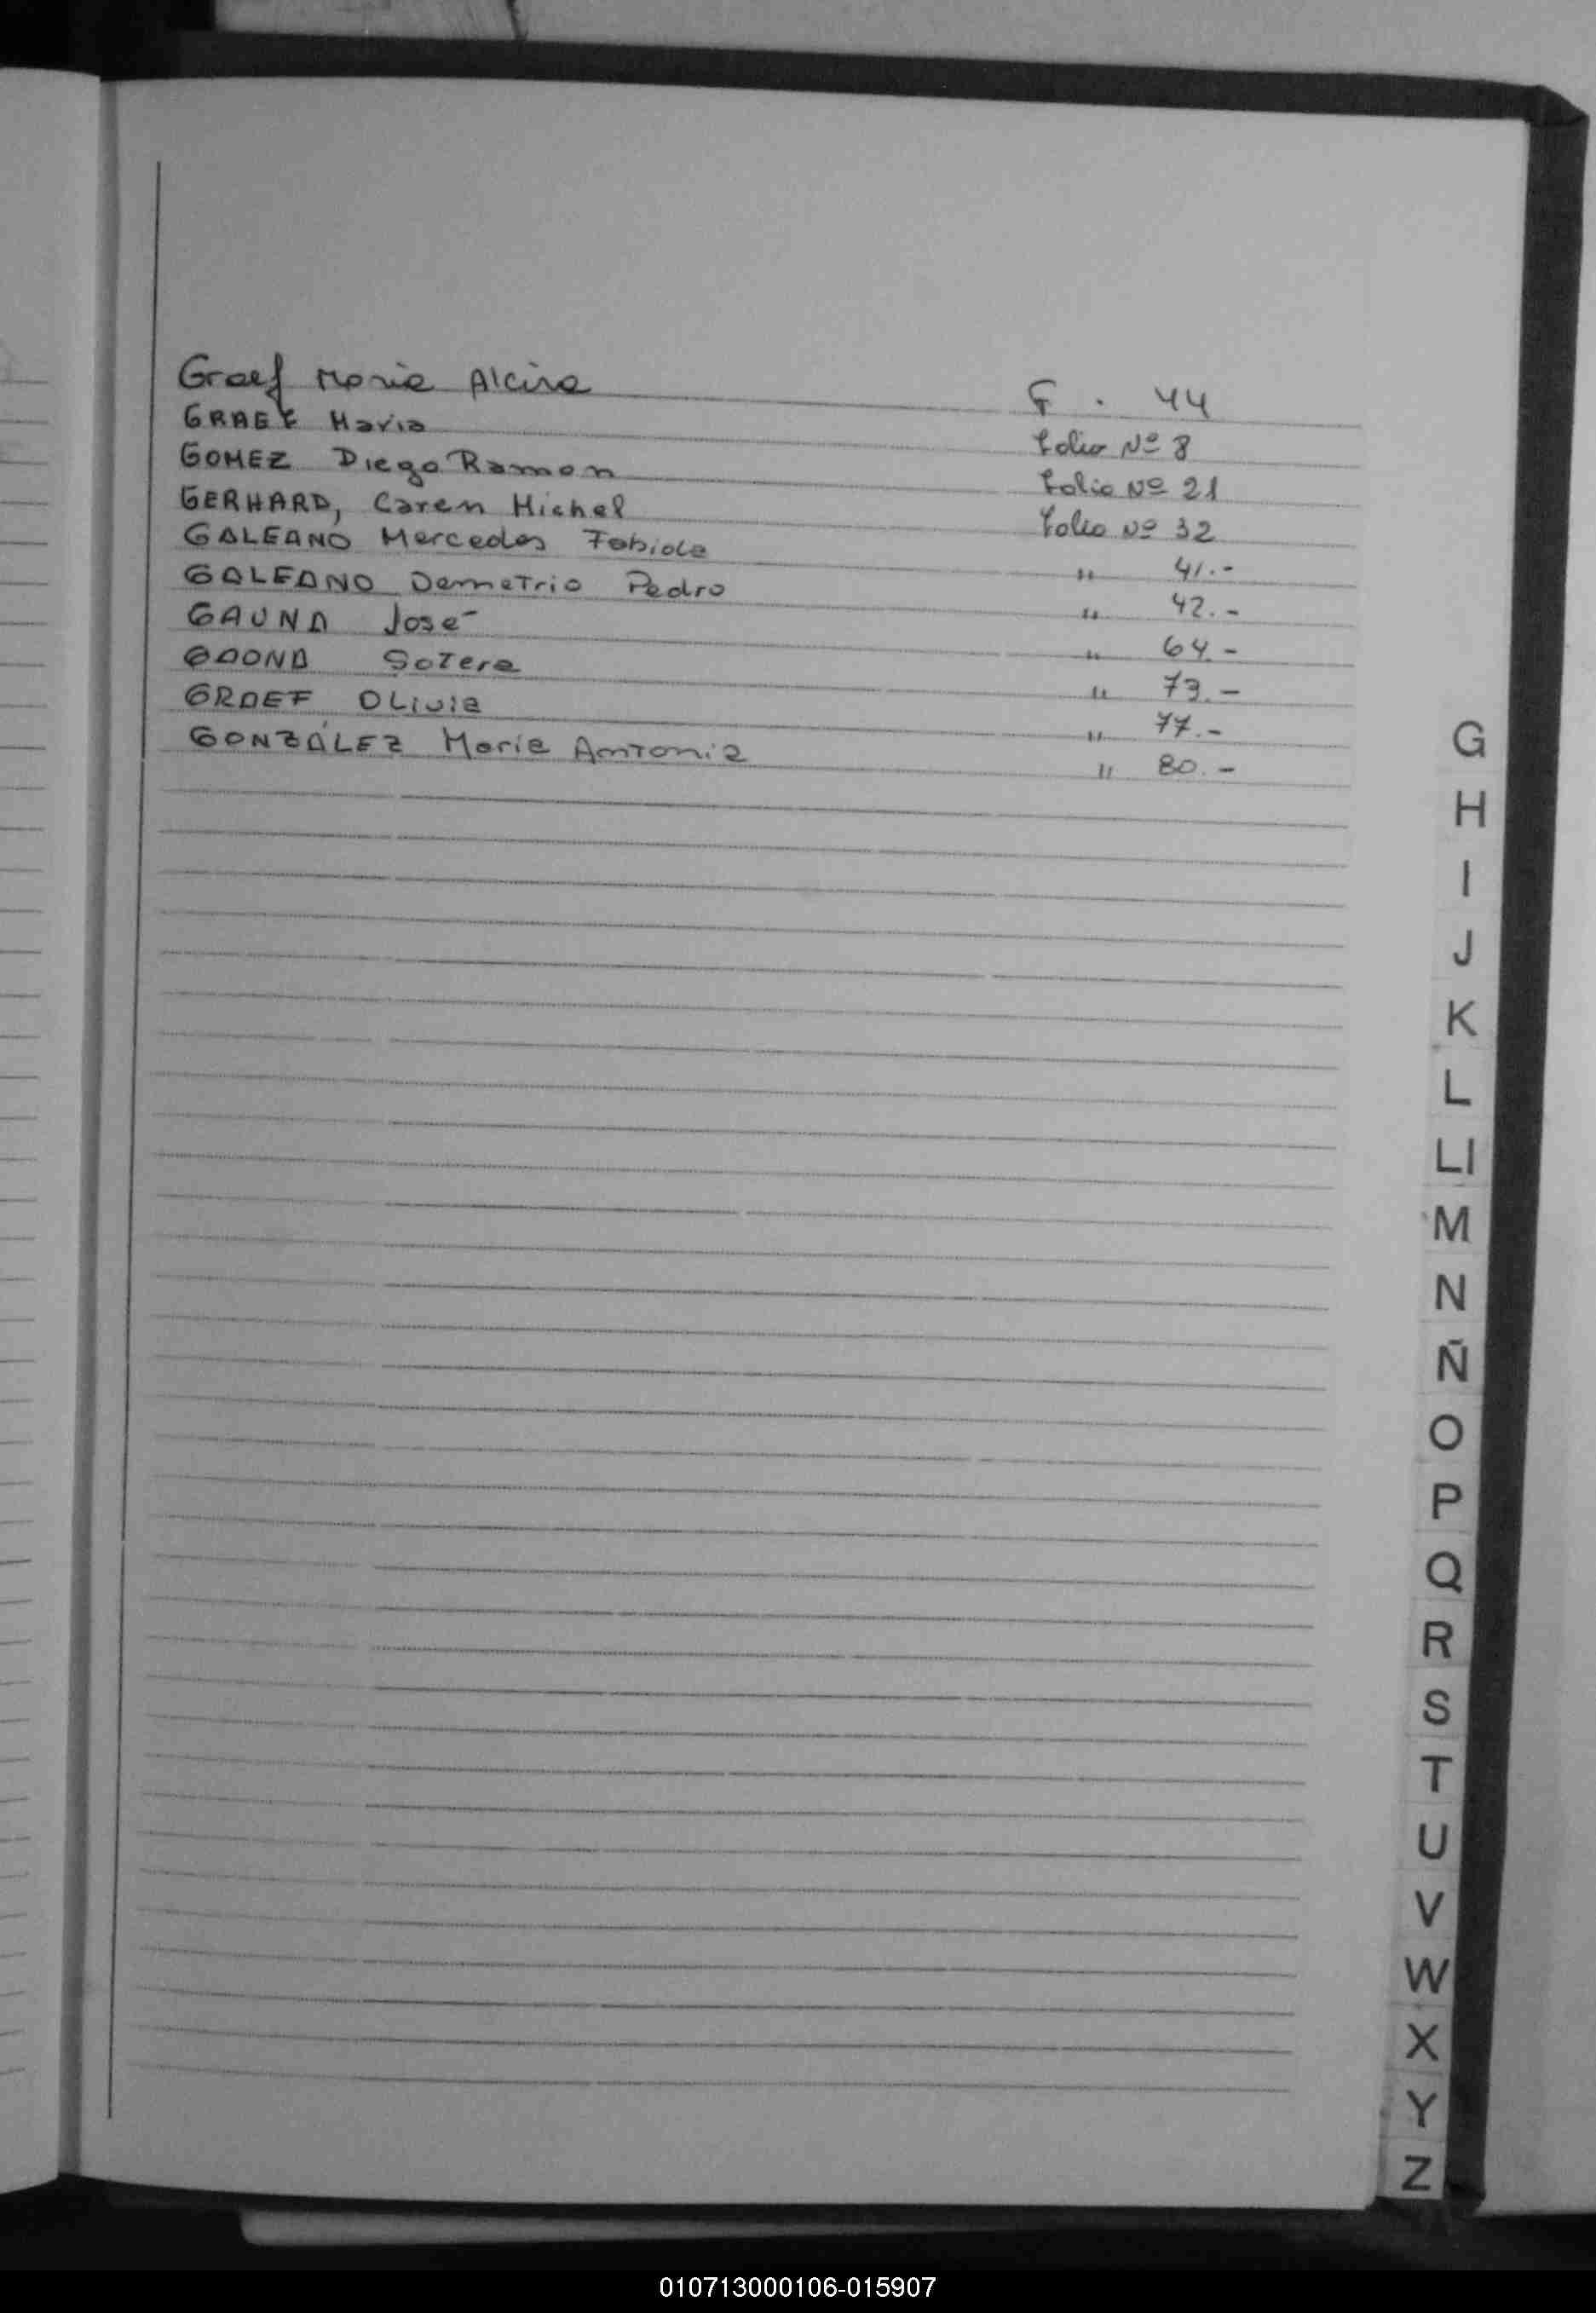 Graef Maria Alcira F. 44
GRAEF Maria Folio Nº 8
GOMEZ Diego Ramon Folio Nº 21
GERHARD, Caren Michel Folio Nº 32
GALEANO Mercedes Fabiola " 41.-
GALEANO Demetrio Pedro " 42.-
GAUNA José " 64.-
GAONA Sotera " 73.-
GRAEF Olivia " 77.-
GONZÁLEZ Maria Antonia " 80.-
G
H
I
J
K
L
Ll
M
N
Ñ
O
P
Q
R
S
T
U
V
W
X
Y
Z
010713000106-015907